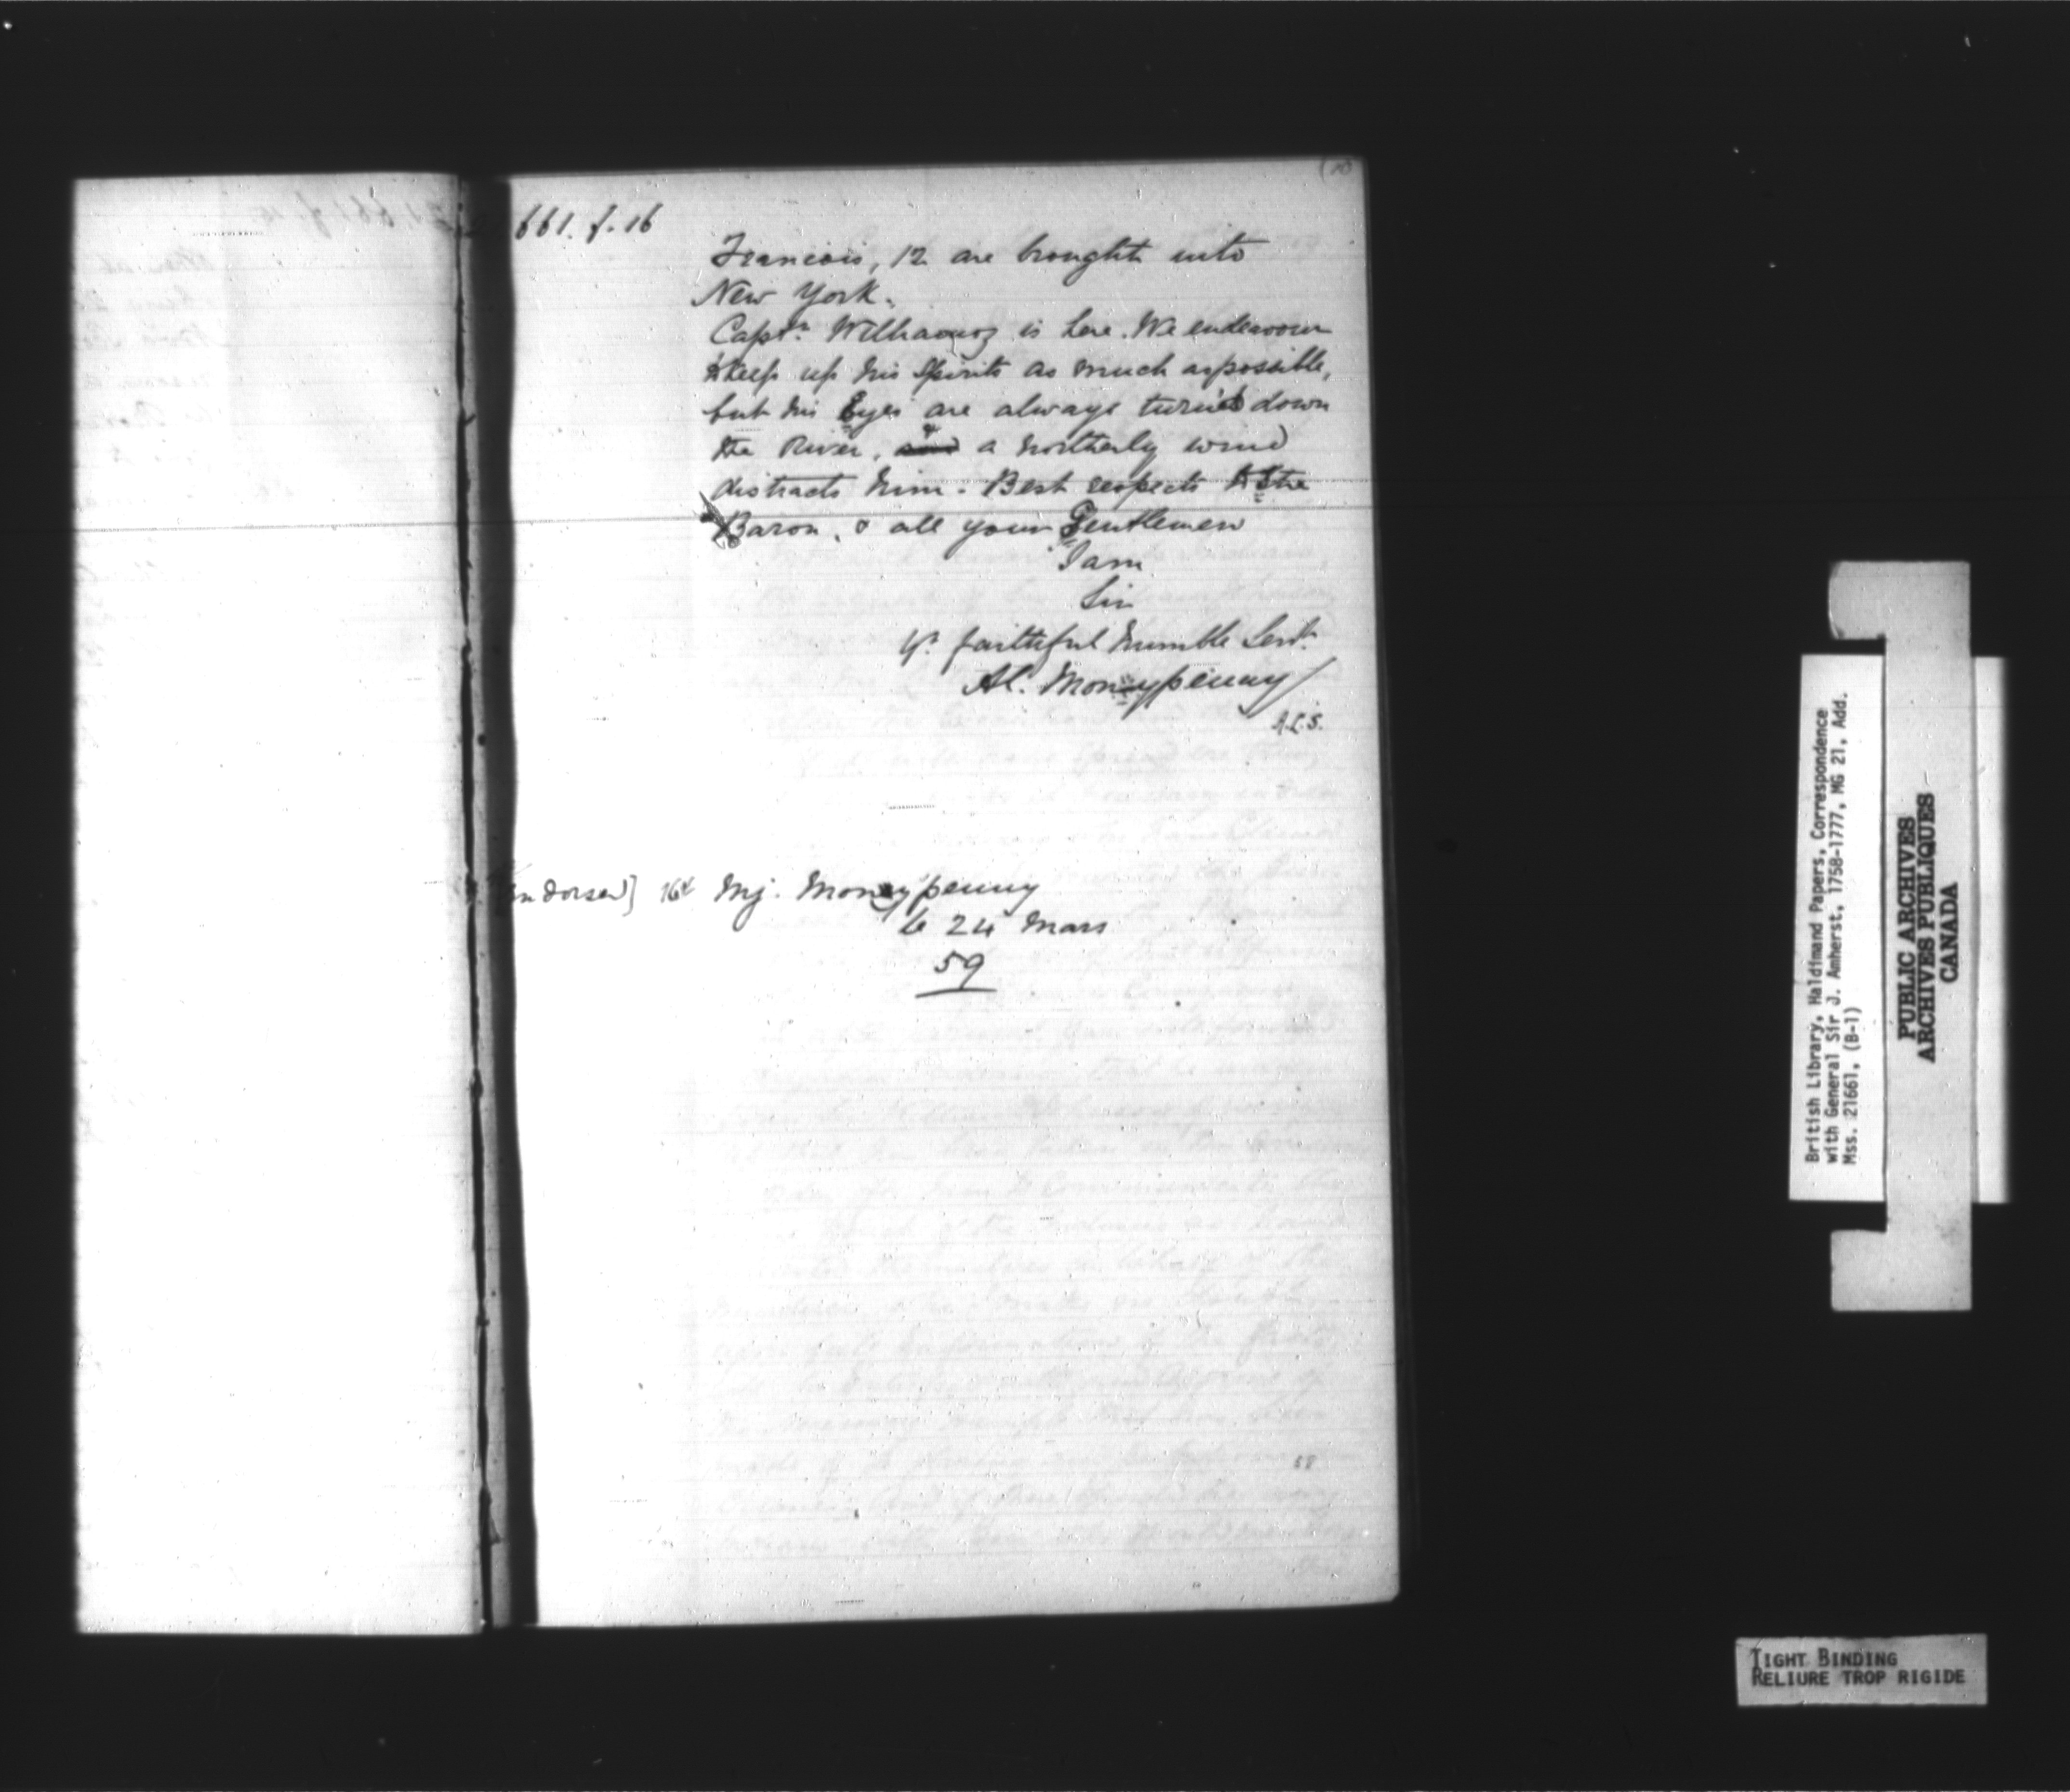 661. f. 16
Francois, 12 are brought into
New York.
Captn. Williamoz is here. We endeavour
to keep up his Spirits as much as possible,
but his Eyes are always turned down
the River, & a Northerly wind
distracts him. Best respects to the
Baron, & all your Gentlemen
I am
Sir
Yr. faithful humble Servt.
Al. Moneypenny
A.L.S.
Endorsed] Mj. Moneypenny
le 24 Mars
59
58
British Library, Haldimand Papers, Correspondence
with General Sir J. Amherst, 1758-1777, MG 21, Add.
Mss. 21661, (B-1)
PUBLIC ARCHIVES
ARCHIVES PUBLIQUES
CANADA
TIGHT BINDING
RELIURE TROP RIGIDE